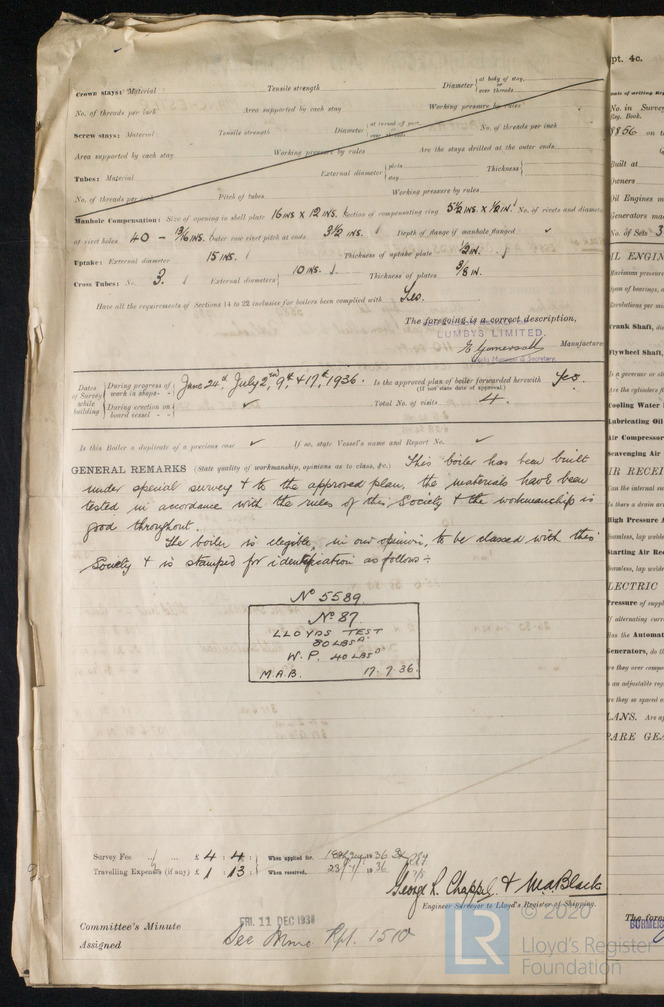 Crown stays: Material Tensile strength Diameter { at body of stay, or over threads
No. of threads per inch Area supported by each stay Working pressure by rules
Screw stays: Material Tensile strength Diameter { at turned off part, or over threads No. of threads per inch
Area supported by each stay Working pressure by rules Are the stays drilled at the outer ends
Tubes: Material External diameter { plain stay Thickness {
No. of threads per inch Pitch of tubes Working pressure by rules
Manhole Compensation: Size of opening in shell plate 16 INS. X 12 INS. Section of compensating ring 5½ INS. X ½ IN. No. of rivets and diameter
of rivet holes 40 - 13/16 INS. Outer row rivet pitch at ends 3½ INS. Depth of flange if manhole flanged ✓
Uptake: External diameter 15 INS. Thickness of uptake plate ½ IN.
Cross Tubes: No. 3. External diameters { 10 INS. Thickness of plates 3/8 IN.
Have all the requirements of Sections 14 to 22 inclusive for boilers been complied with Yes.
The foregoing is a correct description,
LUMBYS LIMITED.
E Gomersall Manufacturer
Secretary.
Dates of Survey while building { During progress of work in shops - - June 24th July 2nd, 9th & 17th, 1936. Is the approved plan of boiler forwarded herewith Yes.
(If not state date of approval.)
During erection on board vessel - - - ✓ Total No. of visits 4.
Is this Boiler a duplicate of a previous case ✓ If so, state Vessel's name and Report No. ✓
GENERAL REMARKS (State quality of workmanship, opinions as to class, &c.) This boiler has been built
under special survey & to the approved plan, the materials have been
tested in accordance with the rules of this Society & the workmanship is
good throughout.
The boiler is elegible, in our opinion, to be classed with this
Society & is stamped for identification as follows:-
No 5589.
No 87.
LLOYDS TEST
80 LBS
W.P. 40 LBS
M.A.B. 17.7.36.
Survey Fee ... £ 4 : 4 : When applied for, 1936
Travelling Expenses (if any) £ 1 : 13 : When received, 1936
George R. Chappel & M.A. Black
Engineer Surveyor to Lloyd's Register of Shipping.
Committee's Minute FRI. 11 DEC 1936
Assigned See Rpt. 1510
© 2020
LR
Lloyd's Register
Foundation
pt. 4c.
No. in Survey
Reg. Book.
Built at
Owners
Oil Engines m
Generators mad
No. of Sets 3
IL ENGIN
Crank Shaft, dia
Flywheel Shaft,
Cooling Water
Lubricating Oil
Air Compressor
Scavenging Air
IR RECEI
High Pressure A
Starting Air Rec
LECTRIC
Pressure of suppl
Has the Automat
Generators, do th
LANS. Are ap
PARE GEA
The fore